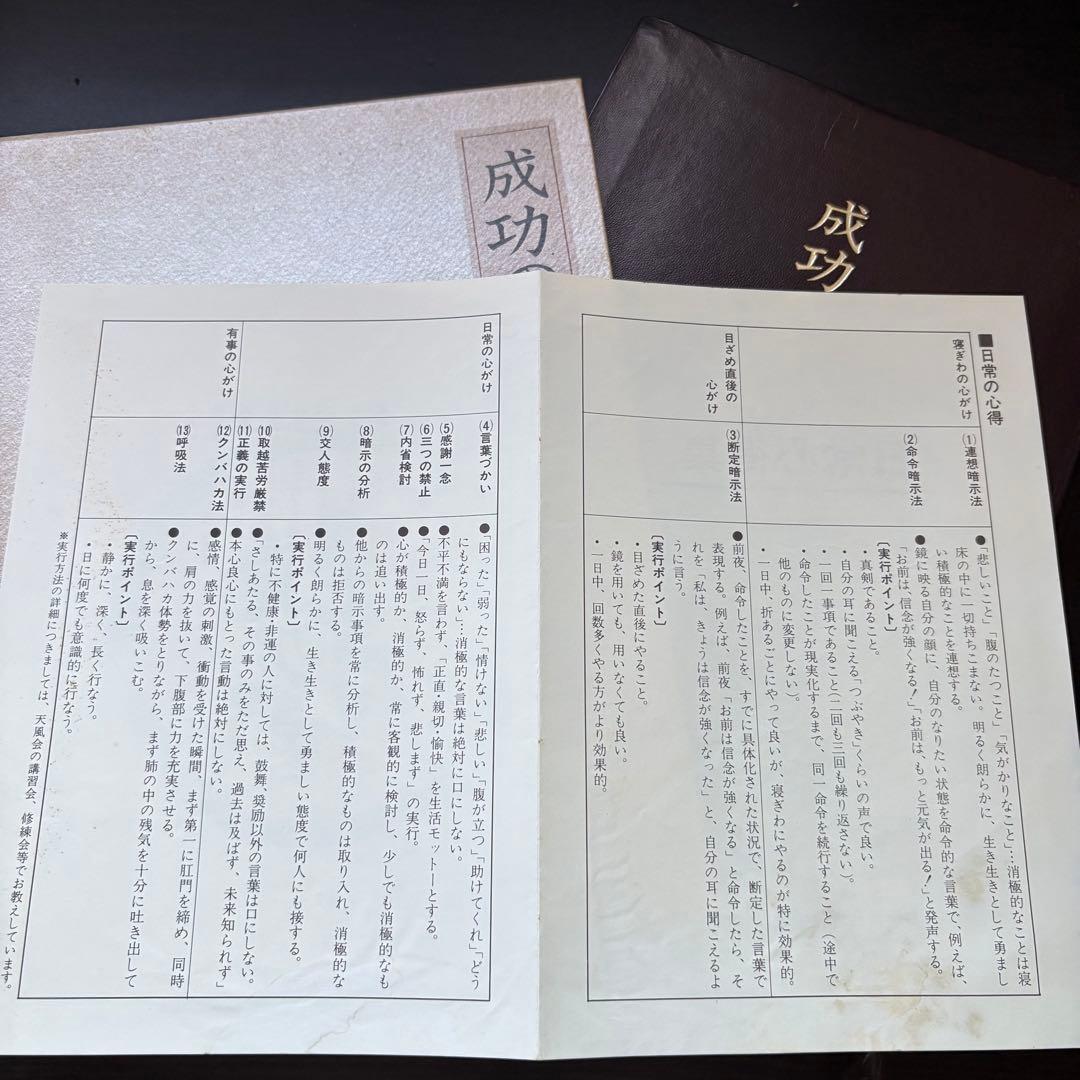 成功の
成功
■日常の心得
寝ぎわの心がけ
(1)連想暗示法
●「悲しいこと」「腹のたつこと」「気がかりなこと」…消極的なことは寝
床の中に一切持ちこまない。明るく朗らかに、生き生きとして勇まし
い積極的なことを連想する。
(2)命令暗示法
●鏡に映る自分の顔に、自分のなりたい状態を命令的な言葉で、例えば、
「お前は、信念が強くなる!」「お前は、もっと元気が出る!」と発声する。
〔実行ポイント〕
・真剣であること。
・自分の耳に聞こえる「つぶやき」くらいの声で良い。
・一回一事項であること(二回も三回も繰り返さない)。
・命令したことが現実化するまで、同一命令を続行すること(途中で
他のものに変更しない)。
・一日中、折あるごとにやって良いが、寝ぎわにやるのが特に効果的。
目ざめ直後の
心がけ
(3)断定暗示法
●前夜、命令したことを、すでに具体化された状況で、断定した言葉で
表現する。例えば、前夜「お前は信念が強くなる」と命令したら、そ
れを「私は、きょうは信念が強くなった」と、自分の耳に聞こえるよ
うに言う。
〔実行ポイント〕
・目ざめた直後にやること。
・鏡を用いても、用いなくても良い。
・一日中、回数多くやる方がより効果的。
日常の心がけ
(4)言葉づかい
●「困った」「弱った」「情けない」「悲しい」「腹が立つ」「助けてくれ」「どう
にもならない」…消極的な言葉は絶対に口にしない。
(5)感謝一念
●不平不満を言わず、「正直・親切・愉快」を生活モットーとする。
(6)三つの禁止
●「今日一日、怒らず、怖れず、悲しまず」の実行。
(7)内省検討
●心が積極的か、消極的か、常に客観的に検討し、少しでも消極的なも
のは追い出す。
(8)暗示の分析
●他からの暗示事項を常に分析し、積極的なものは取り入れ、消極的な
ものは拒否する。
(9)交人態度
●明るく朗らかに、生き生きとして勇ましい態度で何人にも接する。
〔実行ポイント〕
・特に不健康・非運の人に対しては、鼓舞、奨励以外の言葉は口にしない。
(10)取越苦労厳禁
●「さしあたる、その事のみをただ思え、過去は及ばず、未来知られず」
(11)正義の実行
●本心良心にもとった言動は絶対にしない。
有事の心がけ
(12)クンバハカ法
●感情、感覚の刺激、衝動を受けた瞬間、まず第一に肛門を締め、同時
に、肩の力を抜いて、下腹部に力を充実させる。
(13)呼吸法
●クンバハカ体勢をとりながら、まず肺の中の残気を十分に吐き出して
から、息を深く吸いこむ。
〔実行ポイント〕
・静かに、深く、長く行なう。
・日に何度でも意識的に行なう。
※実行方法の詳細につきましては、天風会の講習会、修練会等でお教えしています。